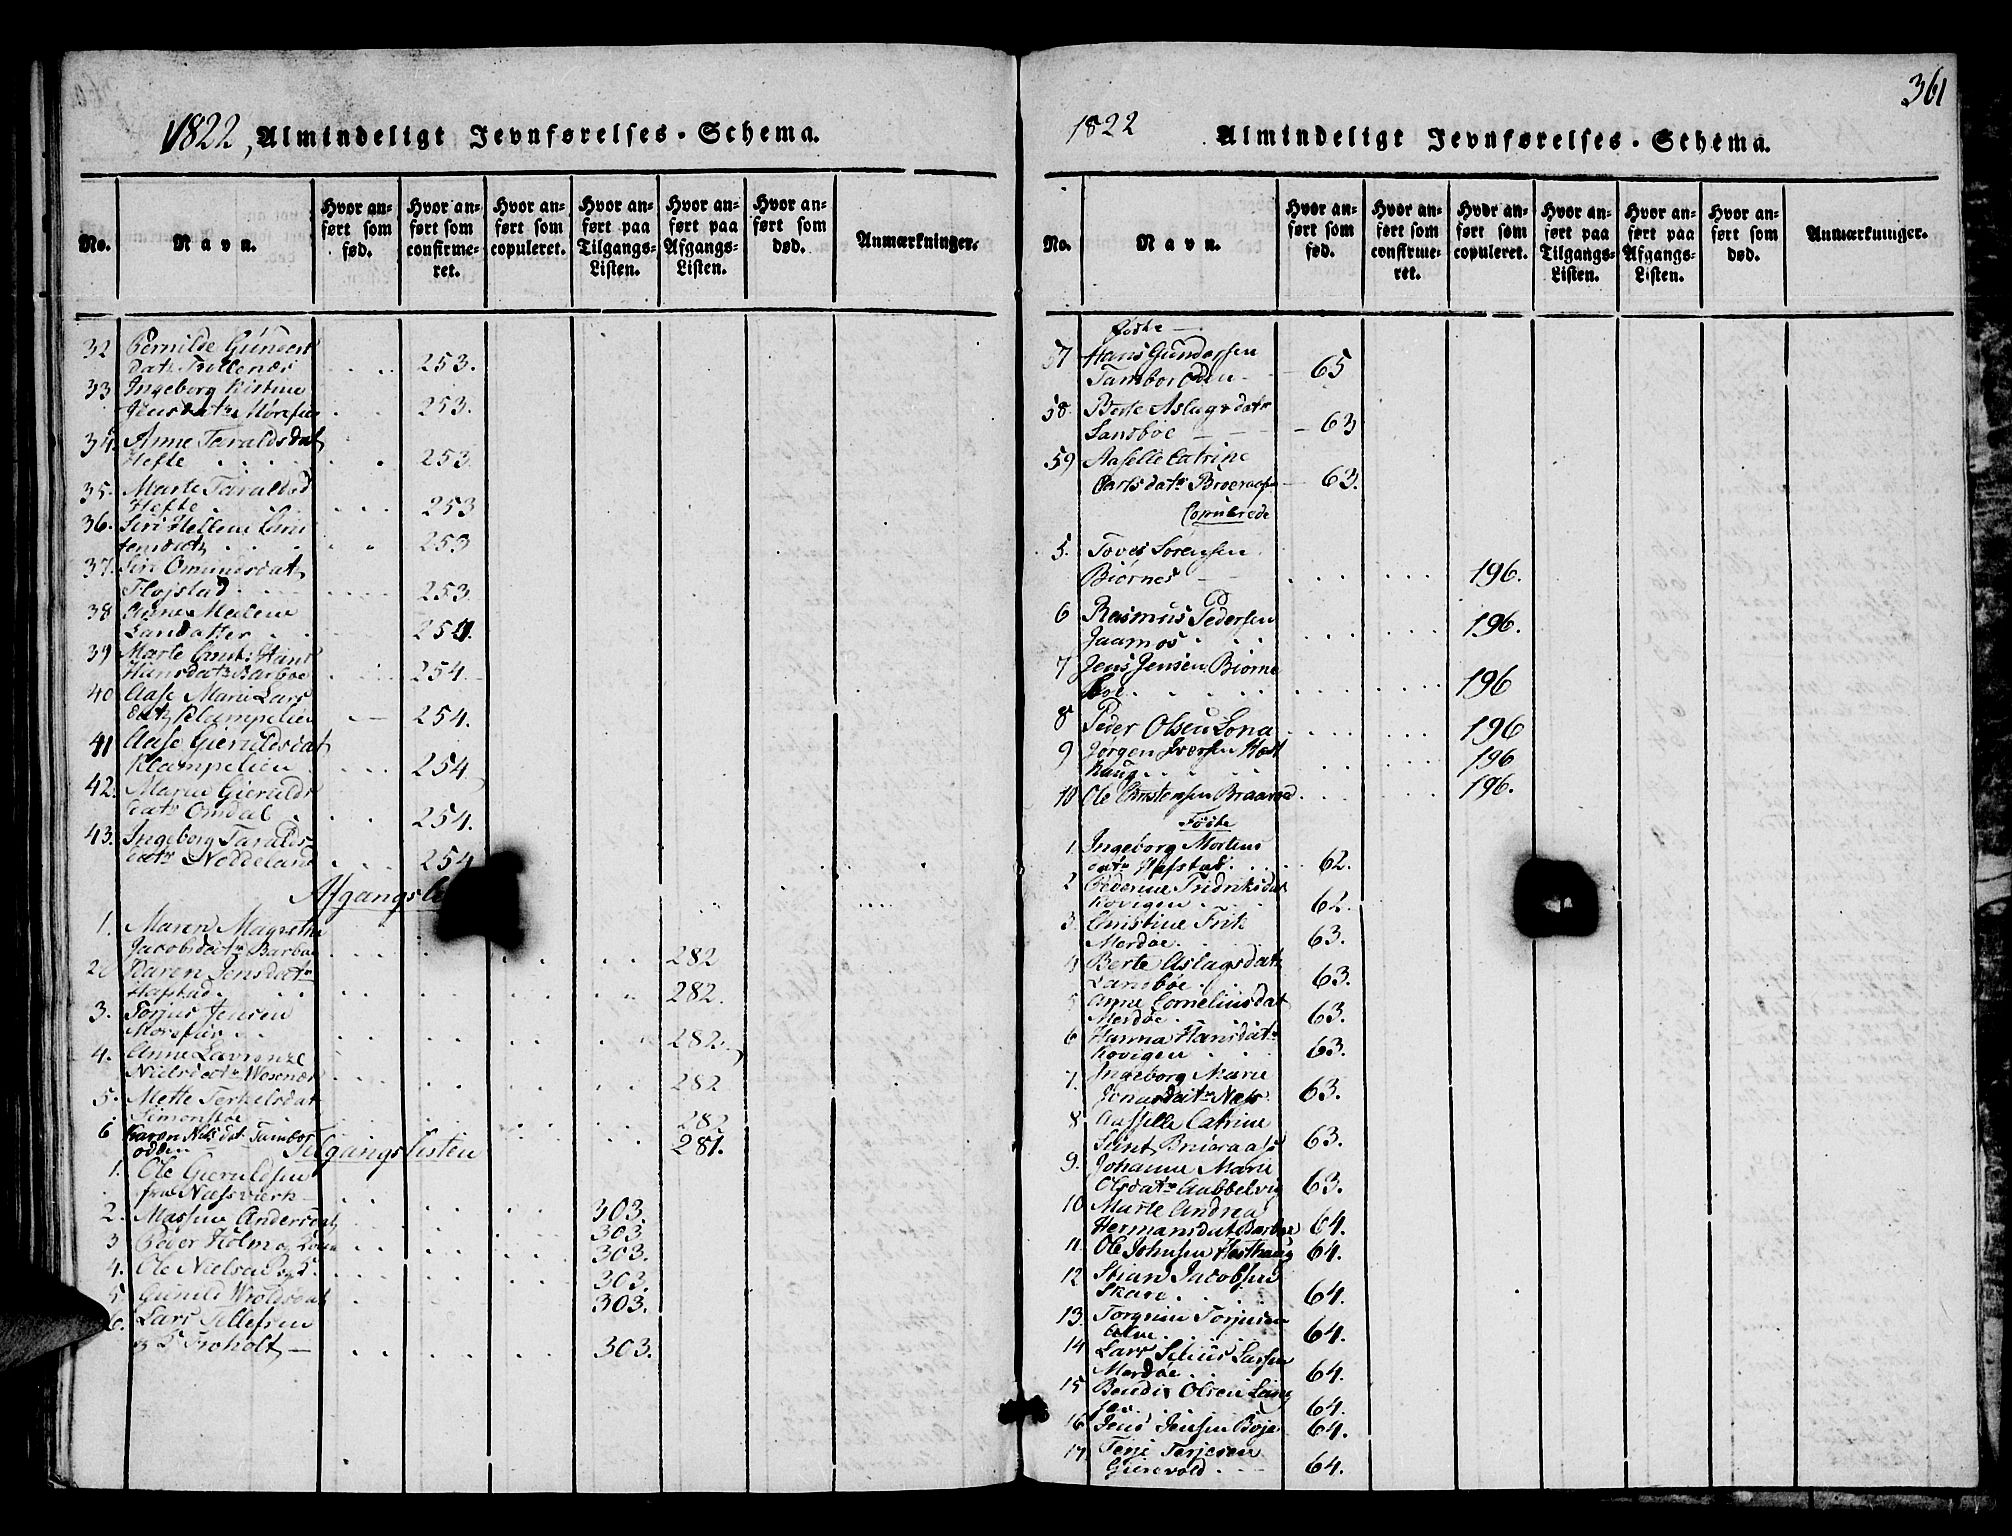 1822, Almindeligt Jevnførelses-Schema.
No.
Navn.
Hvor an-
ført som
fød.
Hvor an-
ført som
confirme-
ret.
Hvor an-
ført som
copuleret.
Hvor an-
ført paa
Tilgangs-
Listen.
Hvor an-
ført paa
Afgangs-
Listen.
Hvor an-
ført som
død.
Anmærkninger.
32 Pernilde Gunders
datr 253.
33 Ingeborg Kistine
Jensdatr 253.
34. Anne Taraldsdat
Hefte 253.
35. Marte Taraldsd
Hefte 253
36. Siri Hellene
253
37. Siri Omundsdat
Fløjstad 253
38 Anne Malene
254.
39 Marte
Hansdatr Barboe 254.
40 Aase Marie Lars
datr Klampelien 254.
41 Aase Gieruldsdat
Klampelien 254.
42. Maria Gierulds
datr Omdal 254.
43. Ingeborg Taralds
datr Neddeland 254
Afgangsli
1. Maren Magrethe
Jacobsdatr Barboe 282
2 Karen Jensdatr
Hafstad 282.
3. Torjus Jensen
282.
4. Anne Lavrenze
Nielsdatr 282
5. Mette Terkelsdat
282
6 Karen Nilsdat Tambor
odden 281.
Tilgangslisten
1. Ole Gieruldsen
fra Næsværk 303.
2. Massen Andersdat 303
3 Peder Holm 303.
4. Ole Nielsen 303.
5 Gunild Wrolsdat 303.
6. Lars Tellefsen
Froholt 303.
361
1822 Almindeligt Jevnførelses-Schema.
No.
Navn.
Hvor an-
ført som
fød.
Hvor an-
ført som
confirme-
ret.
Hvor an-
ført som
copuleret.
Hvor an-
ført paa
Tilgangs-
Listen.
Hvor an-
ført paa
Afgangs-
Listen.
Hvor an-
ført som
død.
Anmærkninger.
Fødte
57 Hans Gundersen
Tamborodden 65
58. Berte Aslagsdatr
Sandbøe 63
59 Aaselle Catrine
Carlsdatr 63.
Copulerede
5. Toves Sørensen
Biørnes 196.
6 Rasmus Pedersen
196.
7 Jens Jensen Biørne
boe 196
8 Peder Olsen Lona 196
9 Jørgen Iversen Hast
haug 196
10 Ole Christensen 196.
Fødte
1. Ingeborg Mortens
datr Hafstad 62.
2 Pederine Fridriksdat
Kovigen 62.
3. Christine
Merdøe 63.
4 Berte Aslagsdatr
Sandbøe 63.
5 Anne Corneliusdat
Merdøe 63.
6 Hanna Hansdatr
Kovigen 63.
7. Ingeborg Marie
Jonasdatr Næss 63.
8 Aasselle Catrine
63.
9. Johanne Marie
Olsdatr Gubbelvig 63.
10 Marte Andrea
Hermansdat Barboe 64.
11. Ole Johnsen Hasthaug 64.
12 Stian Jacobsen
Skare 64.
13. Torgrim Torjusen
64.
14 Lars Larsen
Merdøe 64.
15 Bendix Olsen Lang
64.
16 Jens Jensen Bøje 64.
17. Terje Terjesen
64.